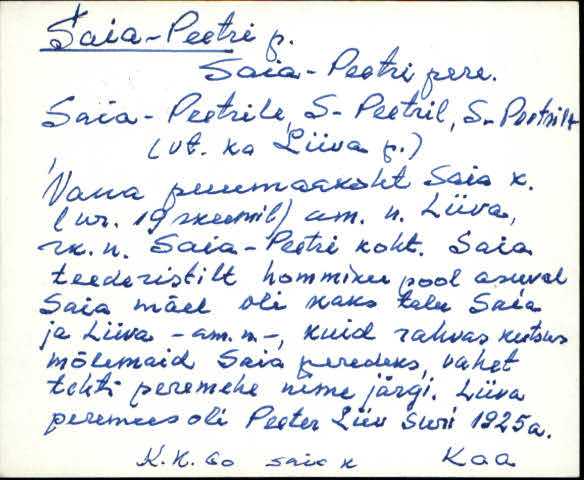 Saia-Peetri p.
Saia-Peetri pere.
Saia-Peetrile, S-Peetril, S-Peetrilt
(vt. ka Liiva p.)
Vana peremaakoht Saia k.
(nr. 19 skeemil) am. n. Liiva,
rk. n. Saia-Peetri koht. Saia
teederistilt hommiku pool asuval
Saia mäel oli kaks talu Saia
ja Liiva -am. n-, kuid rahvas kutsus
mõlemaid Saia peredeks, vahet
tehti peremehe nime järgi. Liiva
peremees oli Peeter Liiv suri 1925a.
K.K. Saia k Kaa